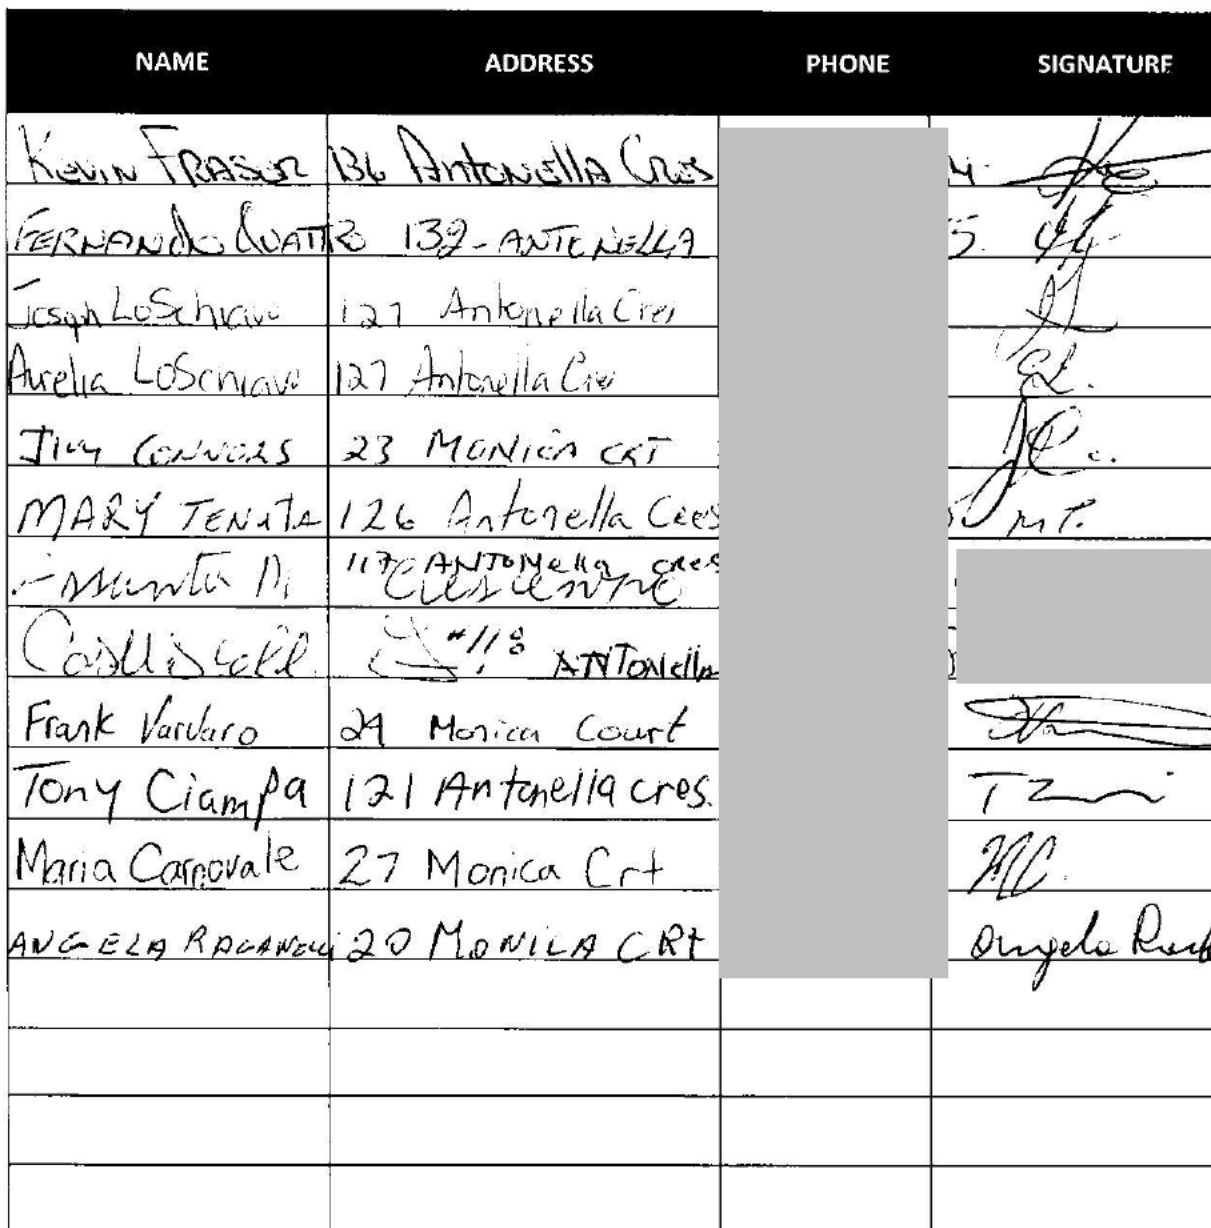 NAME ADDRESS PHONE SIGNATURE
Kevin FRASER 136 Antonella Cres
FERNANDO QUATTRO 132 - ANTONELLA
Joseph LoSchiavo 127 Antonella Cres
Aurelia LoSchiavo 127 Antonella Cres
Jim CONNORS 23 MONICA CRT J.C.
MARY TENUTA 126 Antonella Cres M.T.
117 ANTONella cres
#118 ANTONella
Frank Vardaro 24 Monica Court
Tony Ciampa 121 Antonella cres.
Maria Carnovale 27 Monica Crt MC.
ANGELA RAGANELLI 20 MONICA CRt Angela